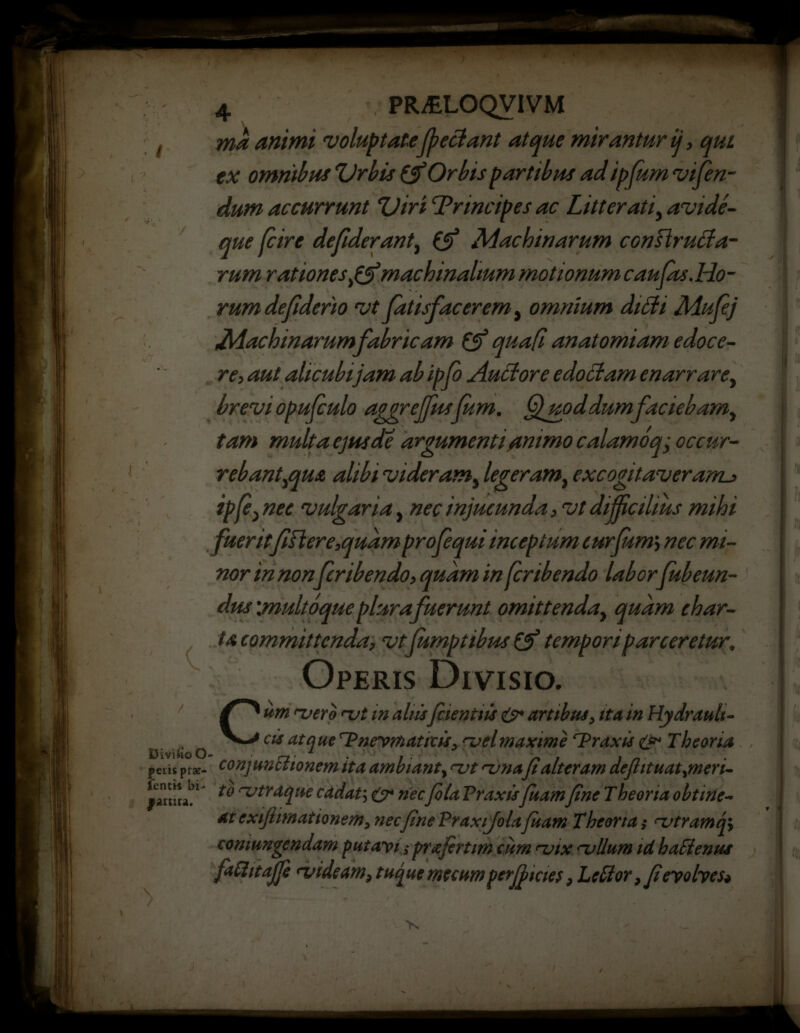 4 PRÆLOQVIVM
má animi voluptate spectant atque mirantur ij, qui
ex omnibus Vrbis & Orbis partibus ad ipsum visen-
dum accurrunt Viri Principes ac Litterati, avidé-
que scire desiderant, & Machinarum constructa-
rum rationes, & machinalium motionum causas. Ho-
rum desiderio vt satisfacerem, omnium dicti Musęj
Machinarum fabricam & quasi anatomiam edoce-
re, aut alicubi jam ab ipso Auctore edoctam enarrare,
brevi opusculo aggressus sum. Quod dum faciebam,
tam multa ejusdē argumenti animo calamóq; occur-
rebant, quæ alibi videram, legeram, excogitaveram
ipse, nec vulgaria, nec injucunda, vt difficiliùs mihi
fuerit sistere, quàm prosequi inceptum cursum; nec mi-
nor in non scribendo, quàm in scribendo labor subeun-
dus: multóque plura fuerunt omittenda, quàm char-
tæ committenda; vt sumptibus & tempori parceretur.
OPERIS DIVISIO.
Cùm verò vt in aliis scientiis & artibus, ita in Hydrauli-
cis atque Pnevmaticis, vel maximè Praxis & Theoria
Divisio O-
peris præ-
sentis bi-
partita.
conjunctionem ita ambiant, vt vna si alteram destituat, meri-
tò vtráque cadat; & nec sola Praxis suam sine Theoria obtine-
at existimationem, nec sine Praxi sola suam Theoria; vtramq;
coniungendam putavi; præsertim cùm vix vllum id hactenus
factitasse videam, tuque mecum perspicies, Lector, si evolves